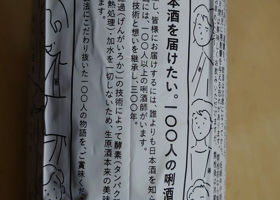 本酒を届けたい。一〇〇人の唎酒
し、皆様にお届けするには、誰よりも日本酒を知ら
には、一〇〇人以上の唎酒師がいます
技術と想いを継承し、三〇〇年。
過(げんがいろか)の技術によって酵素(タンパク
熱処理)加水を一切しないため、生原酒本来の美味
ます。
法にこだわり抜いた一〇〇人の物語を、ご賞味くだ